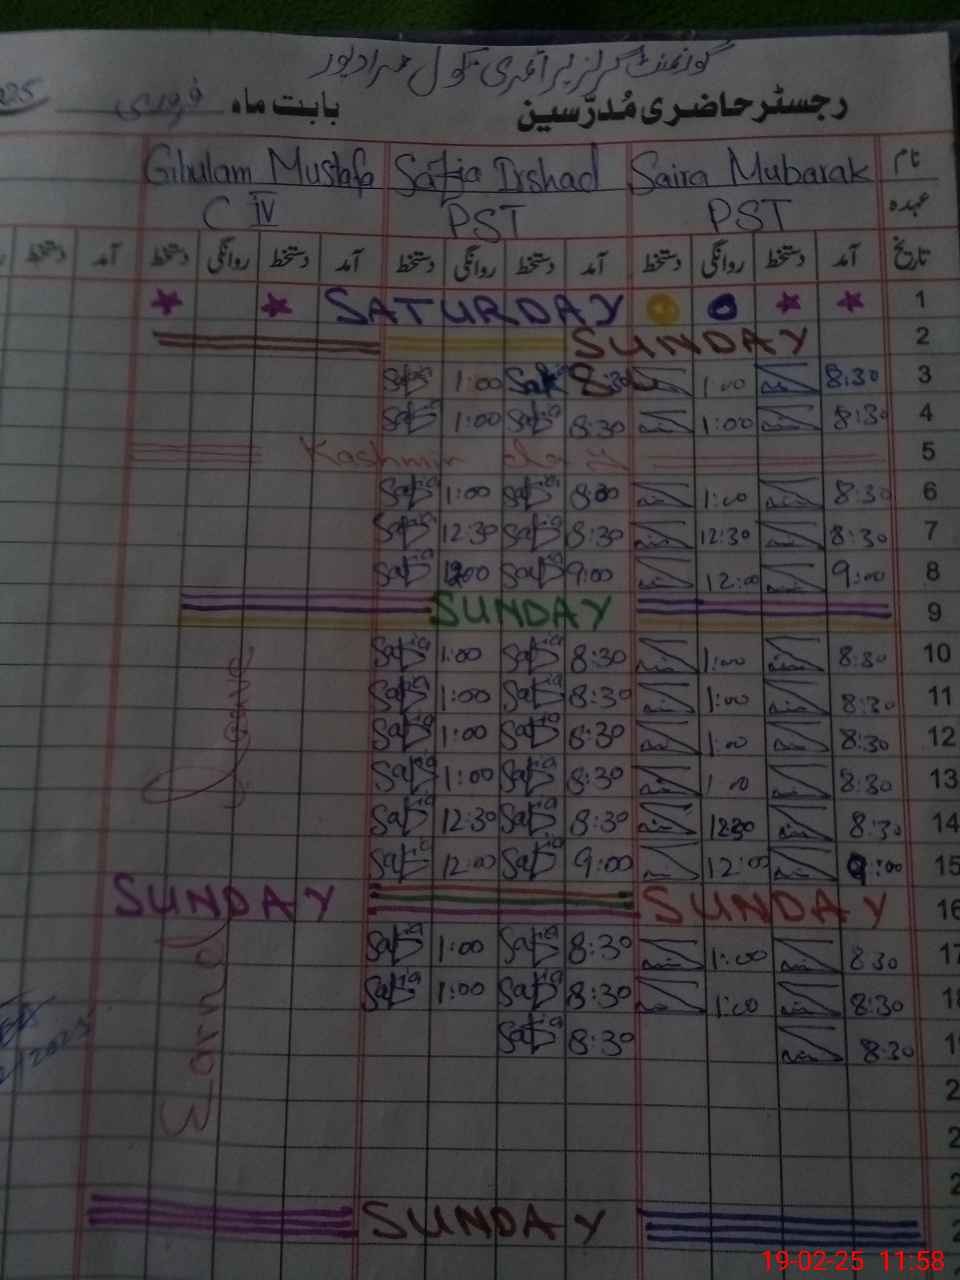 گورنمنٹ گرلز پرائمری سکول مرادپور
رجسٹر حاضری مُدرّسین بابت ماہ فروری
نام Saira Mubarak Safia Irshad Ghulam Mustafa
عہدہ PST PST C IV
تاریخ آمد دستخط روانگی دستخط آمد دستخط روانگی دستخط آمد دستخط روانگی دستخط آمد دستخط
1 SATURDAY
2 SUNDAY
3 8:30 1:00 8:30 Safia 1:00 Safia
4 8:30 1:00 8:30 Safia 1:00 Safia
5 Kashmir day
6 8:30 1:00 8:30 Safia 1:00 Safia
7 8:30 12:30 8:30 Safia 12:30 Safia
8 9:00 12:00 9:00 Safia 12:00 Safia
9 SUNDAY
10 8:30 1:00 8:30 Safia 1:00 Safia
11 8:30 1:00 8:30 Safia 1:00 Safia
12 8:30 1:00 8:30 Safia 1:00 Safia
13 8:30 1:00 8:30 Safia 1:00 Safia
14 8:30 1230 8:30 Safia 12:30 Safia
15 9:00 12:00 9:00 Safia 12:00 Safia
16 SUNDAY SUNDAY
17 8:30 1:00 8:30 Safia 1:00 Safia
18 8:30 1:00 8:30 Safia 1:00 Safia
19 8:30 8:30 Safia
Earned Leave
SUNDAY
19-02-25 11:58